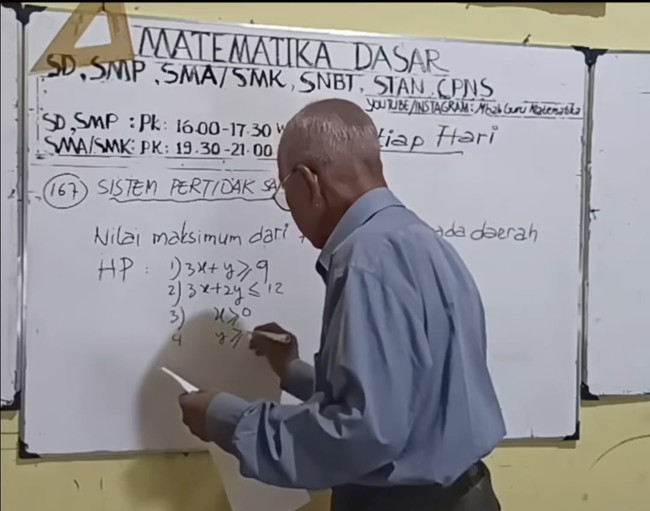 MATEMATIKA DASAR
SD, SMP, SMA/SMK, SNBT, STAN, CPNS
YOUTUBE/INSTAGRAM: Mbah Guru Matematika
SD, SMP : PK: 16.00-17.30 tiap Hari
SMA/SMK: PK: 19.30-21.00
167 SISTEM PERTIDAK SA
Nilai maksimum dari ada daerah
HP : 1) 3x + y ≥ 9
2) 3x + 2y ≤ 12
3) x ≥ 0
4 y ≥